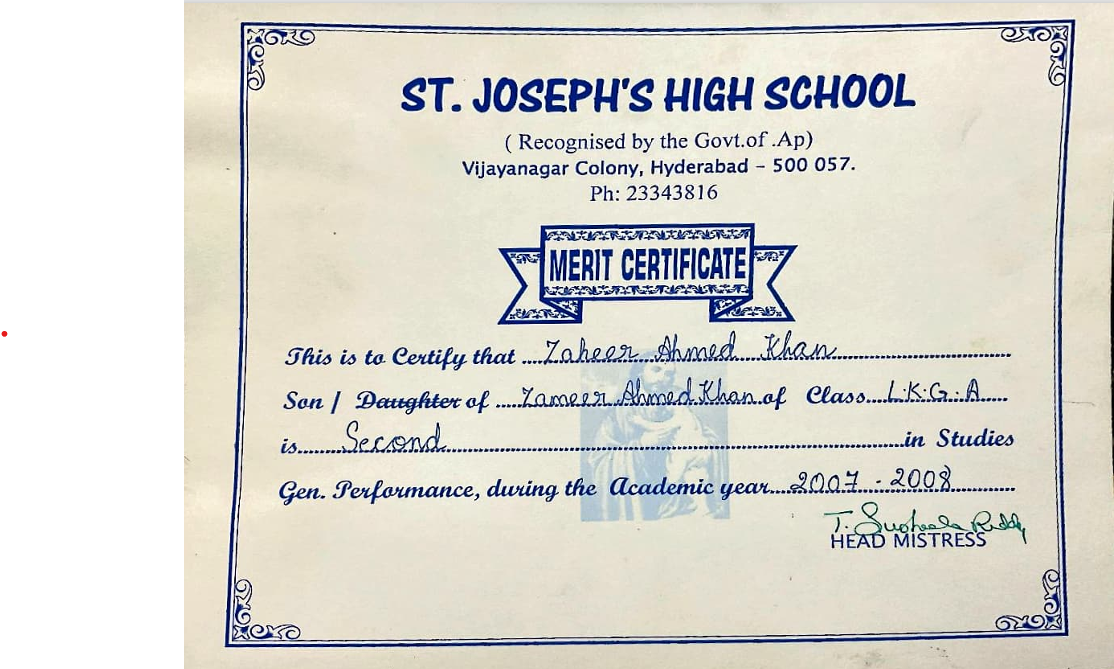 ST. JOSEPH'S HIGH SCHOOL
( Recognised by the Govt.of .Ap)
Vijayanagar Colony, Hyderabad – 500 057.
Ph: 23343816
MERIT CERTIFICATE
This is to Certify that ....Zaheer Ahmed Khan....
Son / Daughter of ....Zameer Ahmed Khan.of Class....L.K.G.A....
is....Second....in Studies
Gen. Performance, during the Academic year....2007 - 2008....
T. Susheela Reddy
HEAD MISTRESS